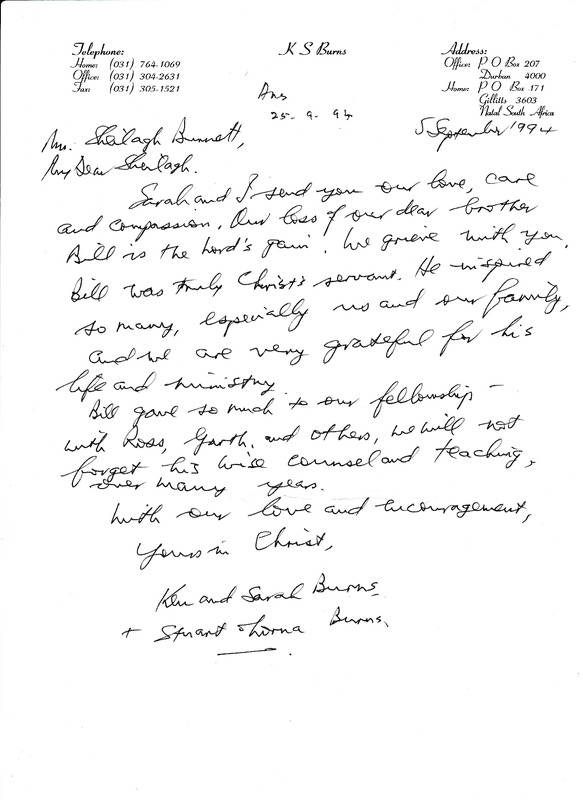 Telephone:
Home: (031) 764-1069
Office: (031) 304-2631
Fax: (031) 305-1521
K S Burns
Address:
Office: P O Box 207
Durban 4000
Home: P O Box 171
Gillitts 3603
Natal South Africa
Ans
25-9-94
5 September 1994
Mrs. Sheilagh Bunnett,
My Dear Sheilagh.
Sarah and I send you our love, care
and compassion. Our loss of our dear brother
Bill is the Lord's gain. We grieve with you.
Bill was truly Christ's servant. He inspired
so many, especially us and our family,
and we are very grateful for his
life and ministry.
Bill gave so much to our fellowship -
with Ross, Garth, and others, we will not
forget his wise counsel and teaching,
over many years.
With our love and encouragement,
Yours in Christ,
Ken and Sarah Burns
+ Stuart & Lorna Burns.